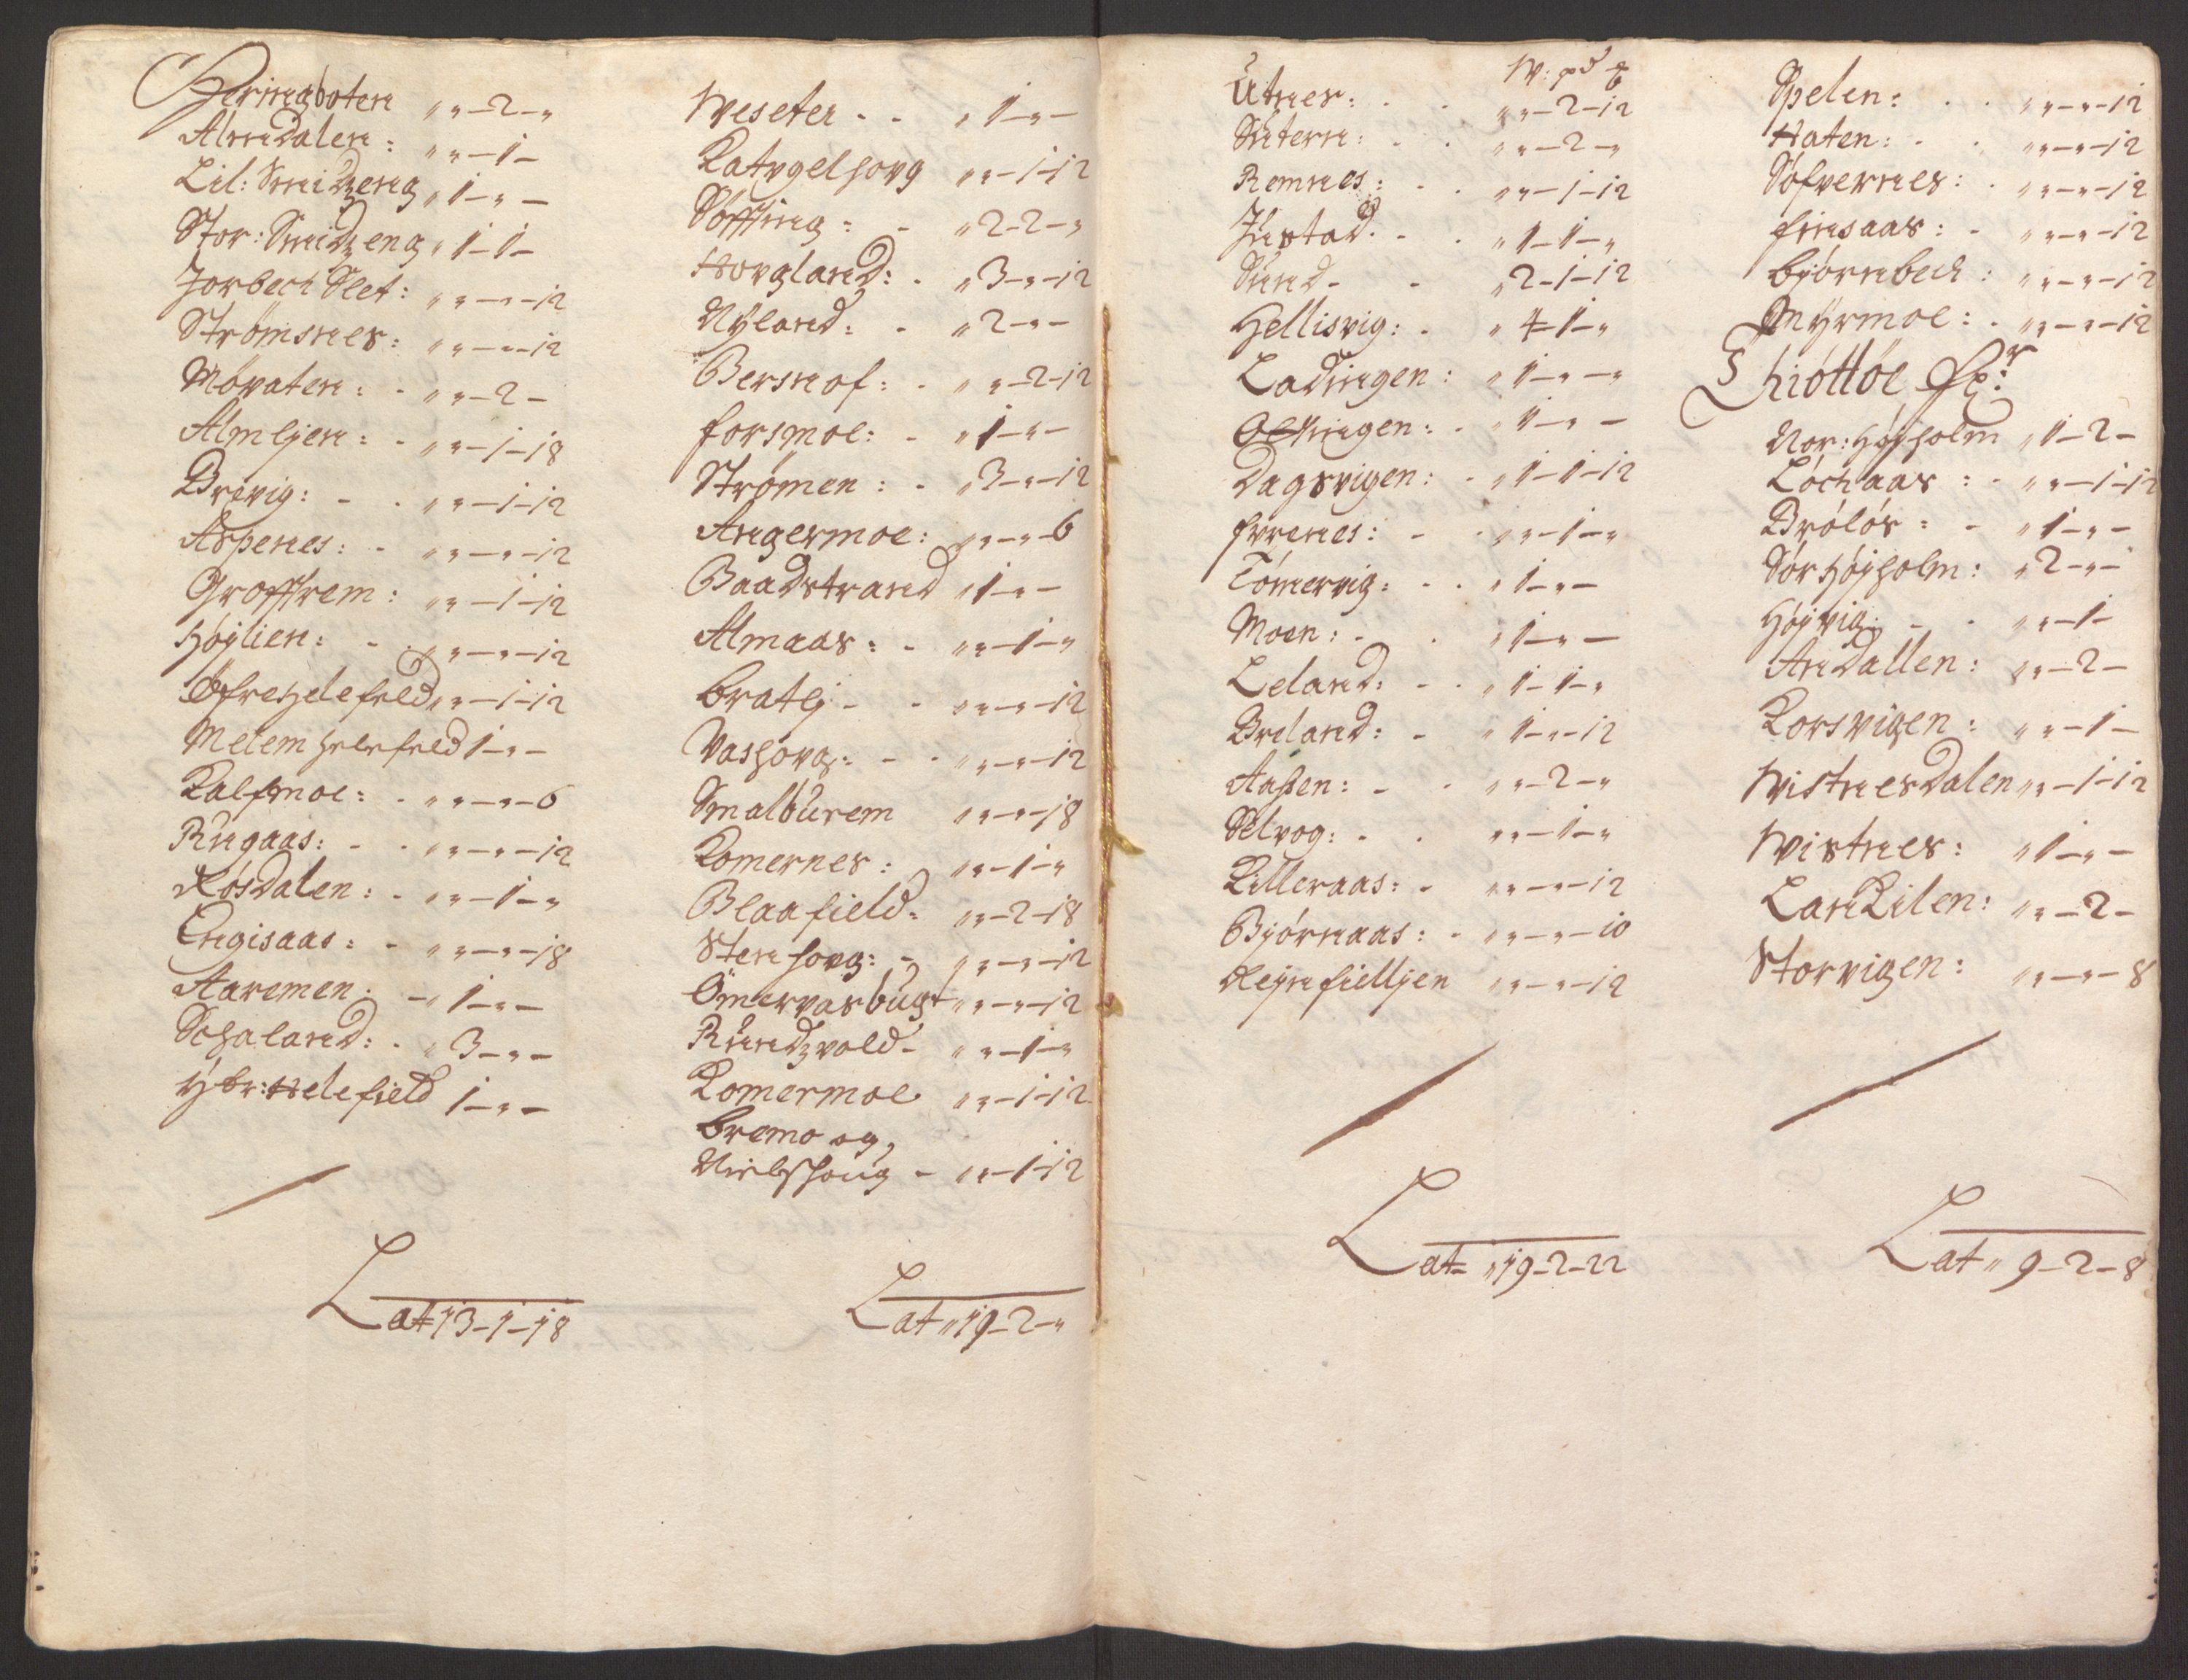 Heringboten „ „ – 2 – „
Almdalen : „ „ – 1 –
Lil: Smidzeng „ 1 – „ –
Stor: Smidzeng „ 1 – 1 –
Jorbech Slet : „ „ – „ – 12
Strømsnes : „ „ – „ – 12
Møvaten : - „ „ – 2 –
Almlien : - „ „ – 1 – 18
Brevig : - - „ „ – 1 – 12
Aspenes : - „ „ – „ – 12
Groffrem : „ „ – 1 – 12
Høylien : - „ „ – „ – 12
Øfrehelefeld „ „ – 1 – 12
Melem helefeld 1 – „ –
Kalfmoe : - „ „ – „ – 6
Rngaas : - - „ „ – „ – 12
Røsdalen : - „ „ – 1 – „
Engisaas : - „ „ – „ – 18
Aaremen : - „ 1 – „ –
Sohaland : - „ 3 – „ –
ÿbr: Helefield 1 – „ –
Lat = 13 – 1 – 18
Weseter - - „ 1 – „ –
Katugelhovg „ „ – 1 – 12
Søffting : - „ 2 – 2 – „
Hovgland : - „ 3 – „ – 12
Nÿland : - „ 2 – „ –
Bersnof : - „ „ – 2 – 12
forsmoe : - „ 1 – „ –
Strømen : - „ 3 – „ – 12
Angermoe : „ „ – „ – 6
Baadstrand „ 1 – „ –
Almaas : - „ „ – 1 – „
bratlj - - „ „ – „ – 12
Vashovg : - - „ „ – „ – 12
Smalbùrem „ „ – „ – 18
Komernes : „ „ – 1 – „
Blaafield : „ „ – 2 – 18
Stenhovg : - „ „ – „ – 12
Ømervasbùgt „ „ – „ – 12
Rùndzvold - „ „ – 1 – „
Komermoe „ „ – 1 – 12
bremo og,
Nielshoug - „ „ – 1 – 12
Lat „ 19 – 2 – „
W : pd ℔
Utnes : - - „ „ – 2 – 12
Sùtern : - - „ „ – 2 – „
Remnes : - - „ „ – 1 – 12
Jùstad - - „ 1 – 1 – „
Sùnd - - „ 2 – 1 – 12
Hellisvig : - „ 4 – 1 – „
Ladingen : „ 1 – „ – „
Oltingen : - „ 1 – „ –
Dagsvigen : - „ 1 – 1 – 12
fvrenes : - - „ „ – 1 – „
Tømervig : - - „ 1 – „ –
Moen : - - „ 1 – „ –
Leland : - - „ 1 – 1 – „
Breland : - „ 1 – „ – 12
Aassen : - - „ „ – 2 – „
Selvog : - - „ „ – 1 – „
Killeraas : - „ „ – „ – 12
Bjørnaas : - „ „ – „ – 10
Reynfielljen „ „ – „ – 12
Lat = „ 19 – 2 – 22
Spelen : - - „ „ – „ – 12
Haten : - - „ „ – „ – 12
Søfvernes : - „ „ – „ – 12
finsaas : - „ „ – „ – 12
bjørnbech : „ „ – „ – 12
Mÿrmoe : - „ „ – „ – 12
Thiøttøe
Nor: Høyholm „ 1 – 2 –
Løchaas : - „ „ – 1 – 12
Brøløs : - „ 1 – „ –
Sør Høyholm : „ 2 – „ –
Høyvig : - - „ „ – 1 –
Andallen : „ „ – 2 –
Korsvigen : „ „ – 1 –
Wistnesdalen „ „ – 1 – 12
Wistnes : „ 1 – „ –
LanKilen : „ „ – 2 –
Storvigen : „ „ – „ – 8
Lat „ 9 – 2 – 8